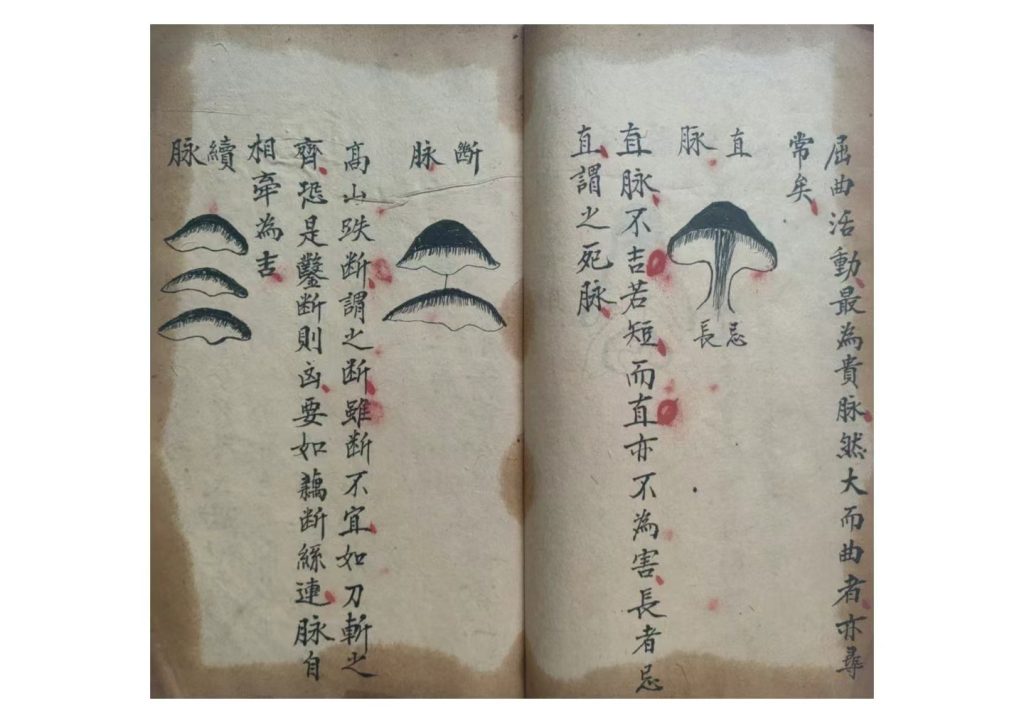 屈曲活動最為貴脉然大而曲者亦尋
常矣
直
脉
忌
長
直脉不吉若短而直亦不為害長者忌
直謂之死脉
斷
脉
高山跌断謂之断雖断不宜如刀斬之
齊恐是鑿断則凶要如藕断絲連脉自
相牽為吉
續
脉